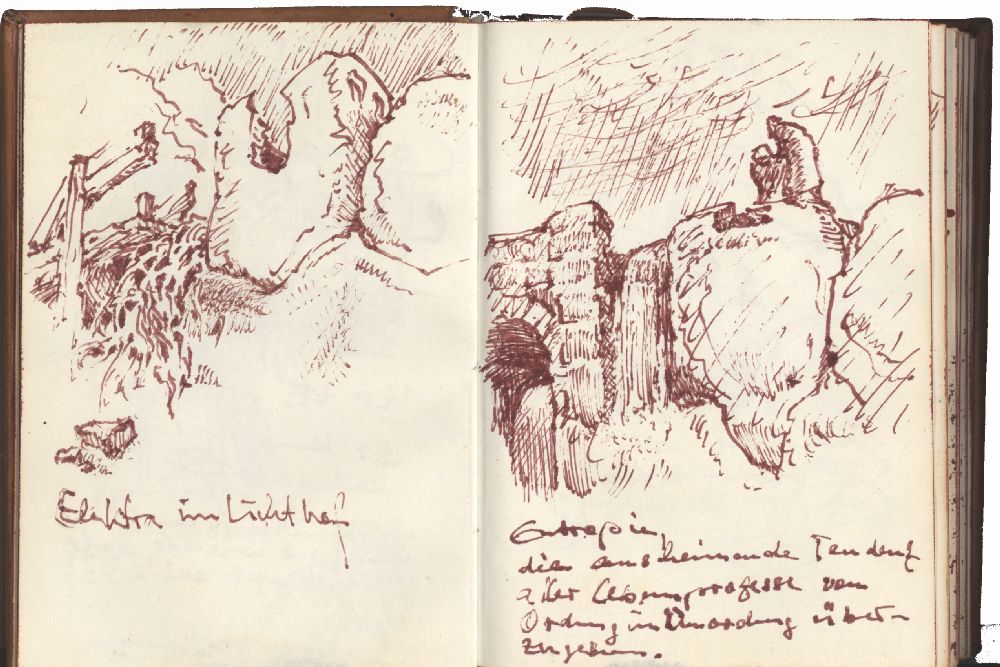 Elektra im Lichthof
Entropie,
die anscheinende Tendenz
aller Lebensprozesse von
Ordnung in Unordnung über-
zugehen.